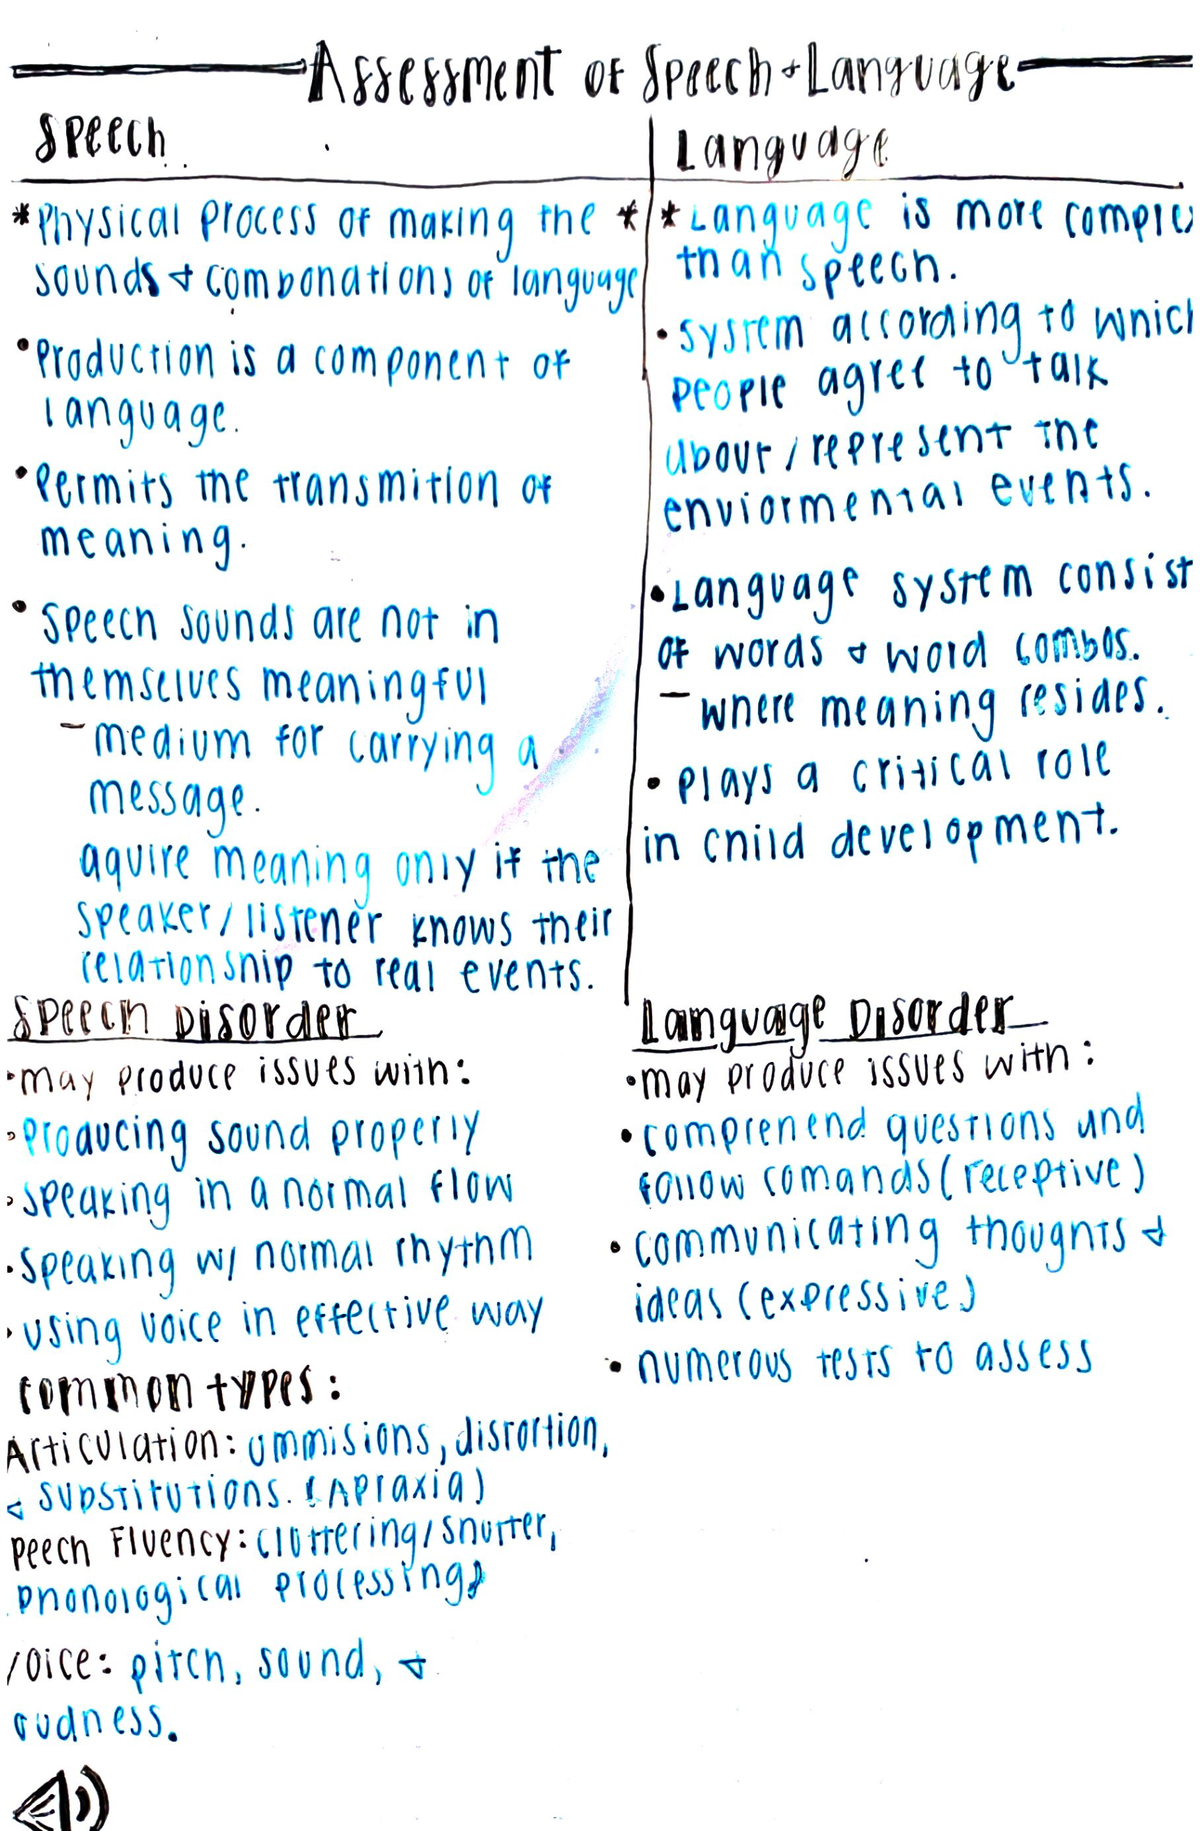 Assessment of Speech + Language
Speech
*Physical process of making the *
sounds + combonations of language
•Production is a component of
language.
•Permits the transmition of
meaning.
•Speech sounds are not in
themselves meaningful
- medium for carrying a
message.
aquire meaning only if the
speaker/listener knows their
relationship to real events.
Language
*Language is more comple
than speech.
•System according to which
people agree to talk
about/represent the
enviormental events.
•Language system consist
of words + word combos.
- where meaning resides.
•plays a critical role
in child development.
Speech Disorder
•may produce issues with:
•producing sound properly
•speaking in a normal flow
•speaking w/ normal rhythm
•using voice in effective way
common types:
Articulation: ommisions, distortion,
+ substitutions. (Apraxia)
peech Fluency: cluttering/shutter,
phonological processing
voice: pitch, sound, +
oudness.
Language Disorder
•may produce issues with:
•comprehend questions and
follow comands (receptive)
•communicating thoughts +
ideas (expressive)
•numerous tests to assess